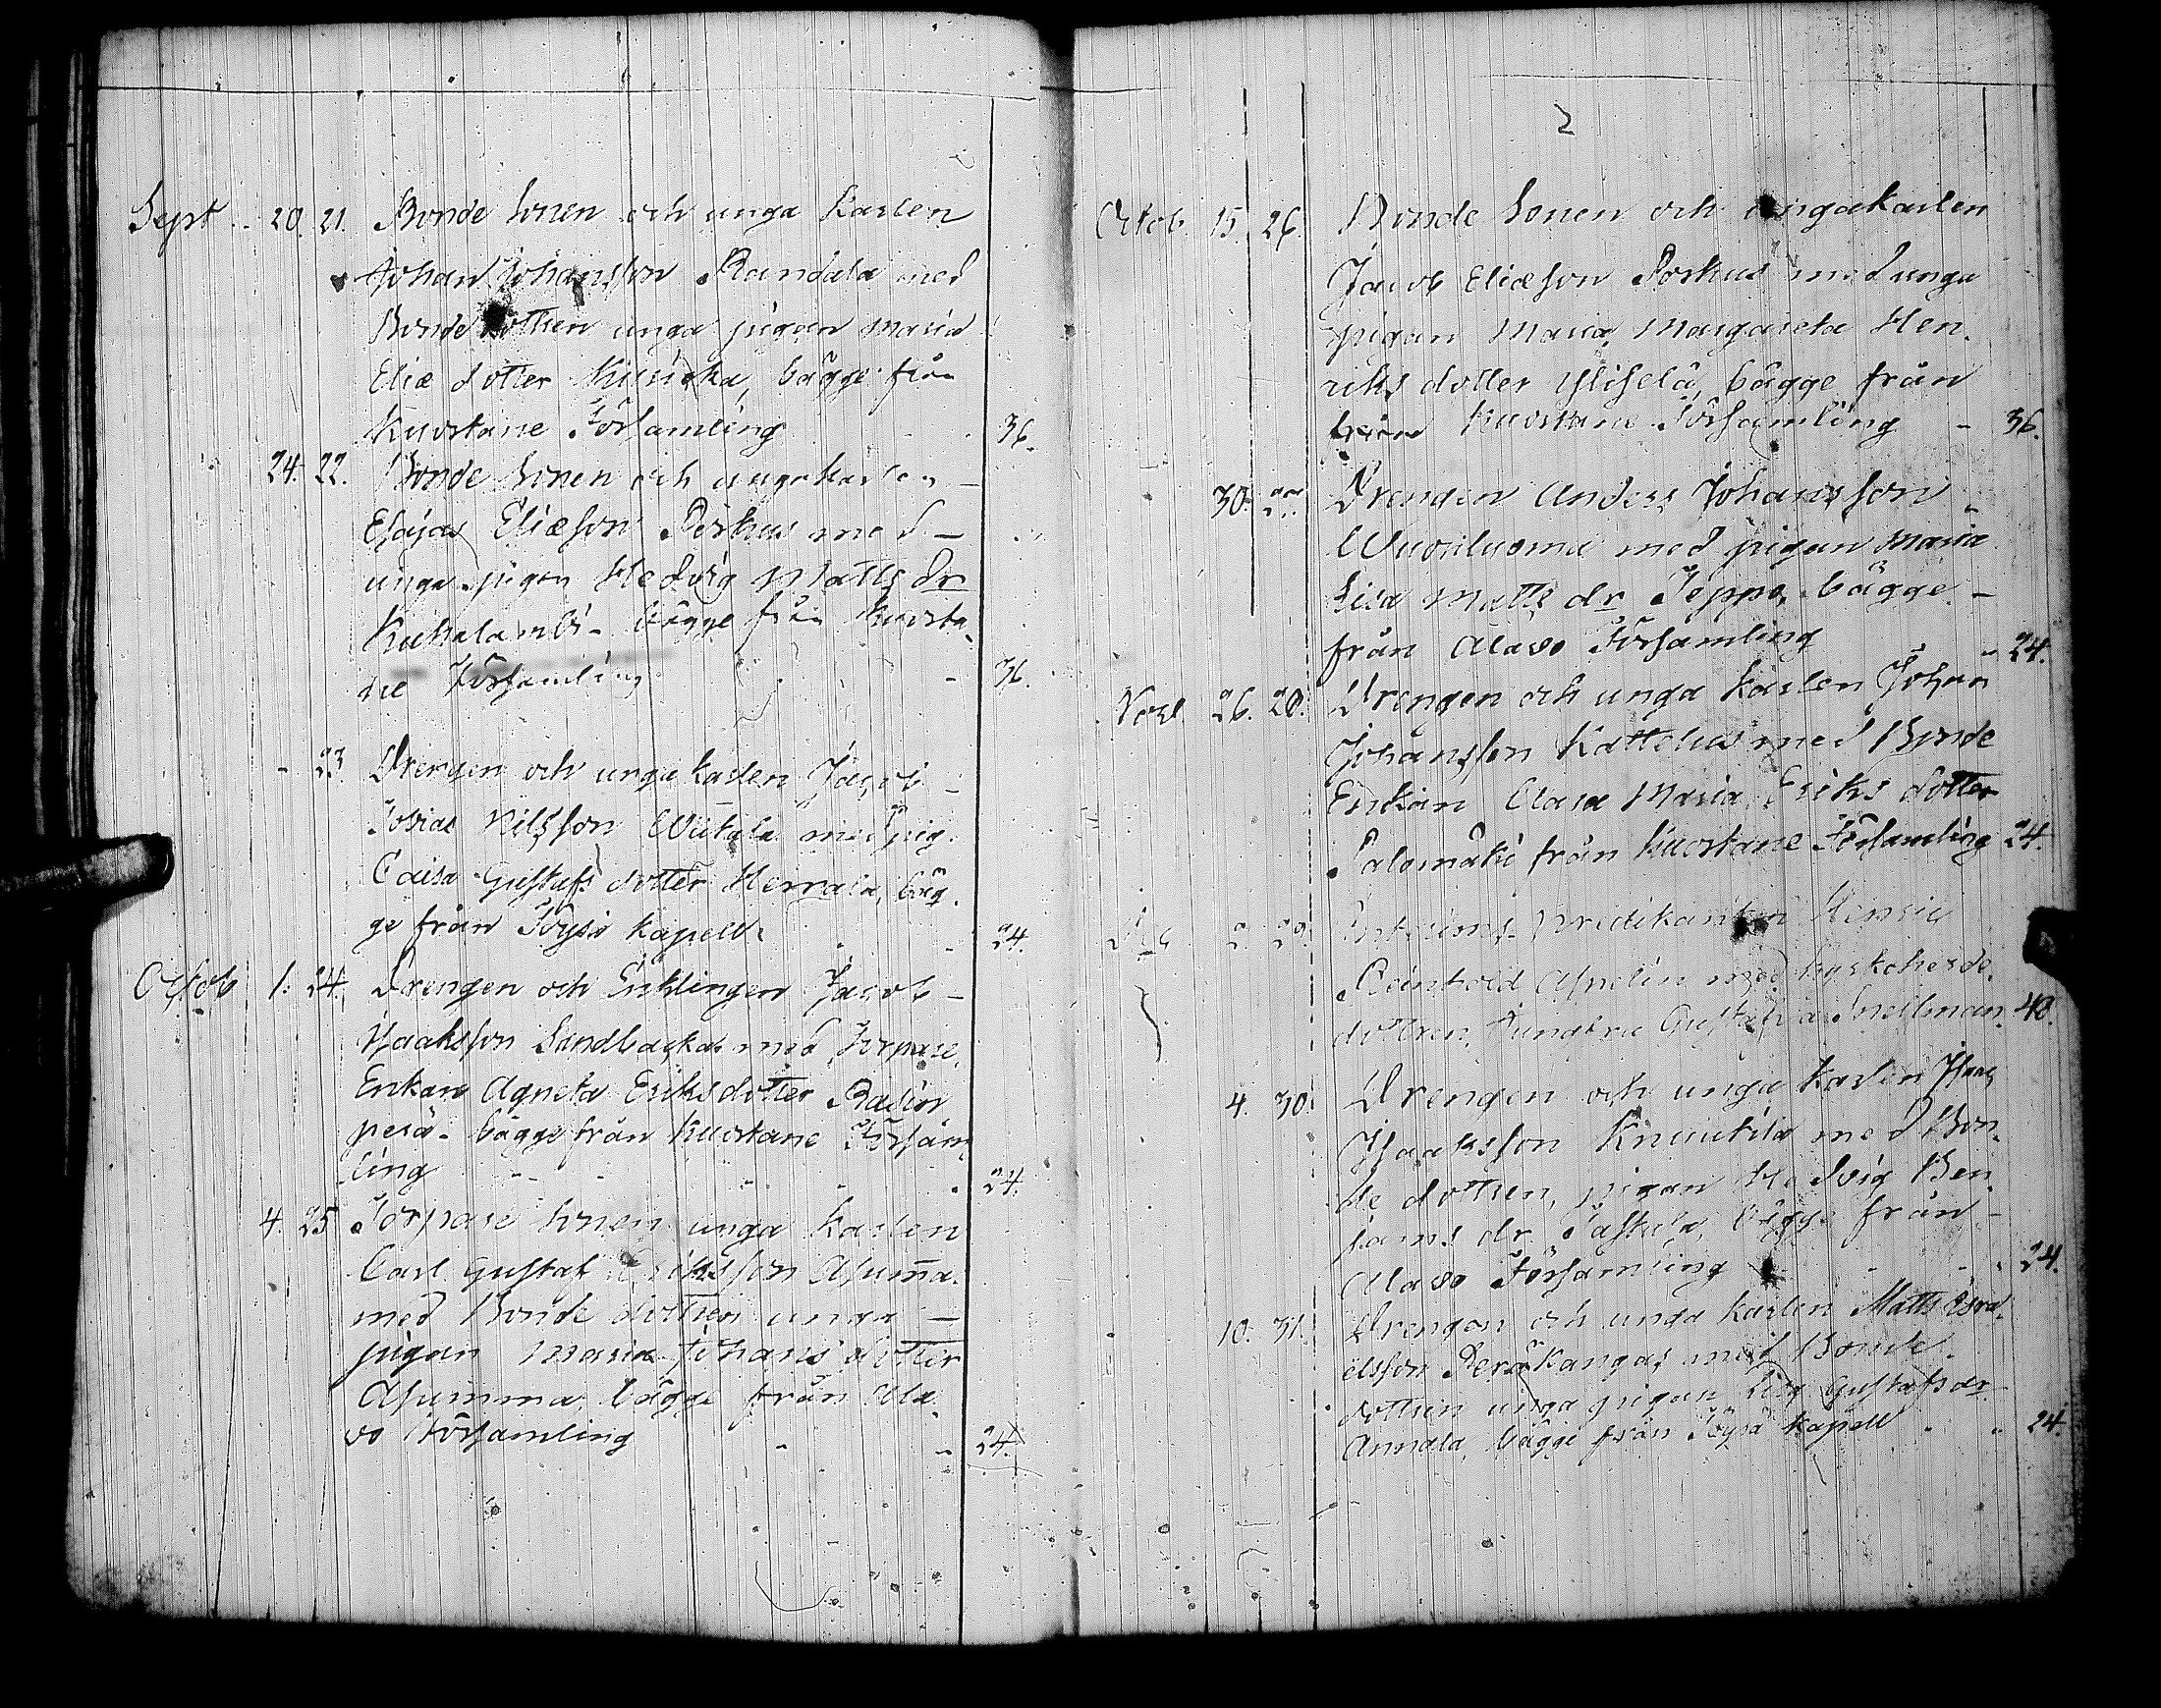 Sept. 20. 21. Bonde Sonen och unga Karlen
Johan Johansson Randala med
Bonde dottren unga pigan Maria
Eliæ dotter Kuusika, bägge från
Kuortane Församling - 36.
24. 22. Bonde Sonen och unga Karlen
Esajas Eliæson Porkus med -
unga pigan Hedvig Matts dr
bägge från Kuorta-
ne Församling - 36.
- 23. Drengen och unga karlen Jacob -
Tobias Nilsson Wiitala med pig.
Caisa Gustafs dotter Herrala, bäg-
ge från Töysä kapell. - 24.
Octob 1. 24. Drengen och Enklingen Jacob -
Isaaksson Sandbacka med Torpare
Enkan Agneta Eriksdotter Rasin
perä - bägge från Kuortane Församling
ling - - 24.
4. 25 Torpare Sonen unga Karlen
Carl Gustaf Eriksson Asum̅a
med Bonde dottren unga -
pigan Maria Johans dotter
Asumma, bägge från Ala-
vo Församling - - 24.
2
Octob. 15. 26. Bonde Sonen och unga karlen
Jacob Eliæson Porkus med unga
pigan Maria Margareta Hen-
riks dotter Yliselä, bägge från
Kuortane Församling - 36.
30. 27. Drengen Anders Johansson -
Wuoriluoma med pigan Maria
Lisa Matts dr Seppä, bägge -
från Alavo Församling - 24.
Nov. 26. 28. Drengen och unga karlen Johan
Johansson Kattelus med Bonde
Enkan Clara Maria Eriks dotter
Salomäki från Kuortane Församling 24.
Dec 2. 29. predikanten Henric
Reinhold Aspelin med kyrkoherde-
dottren, Gustafva Snellman. 48.
4. 30. Drengen och unga karlen Isaac
Isaaksson Knuutila med Bon-
de dottren, pigan Hedvig Ben-
jams dr bägge från -
Alavo Församling - - 24.
10. 31. Drengen och unga karlen Matts Isra-
elsson Peräkangas med Bonde-
dottren unga pigan Lisa Gustafs dr
Annala, bägge från Töysä kapell - 24.